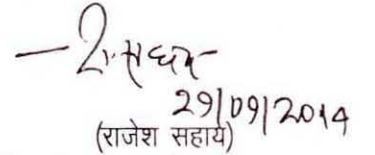 29/09/2014
(राजेश सहाय)